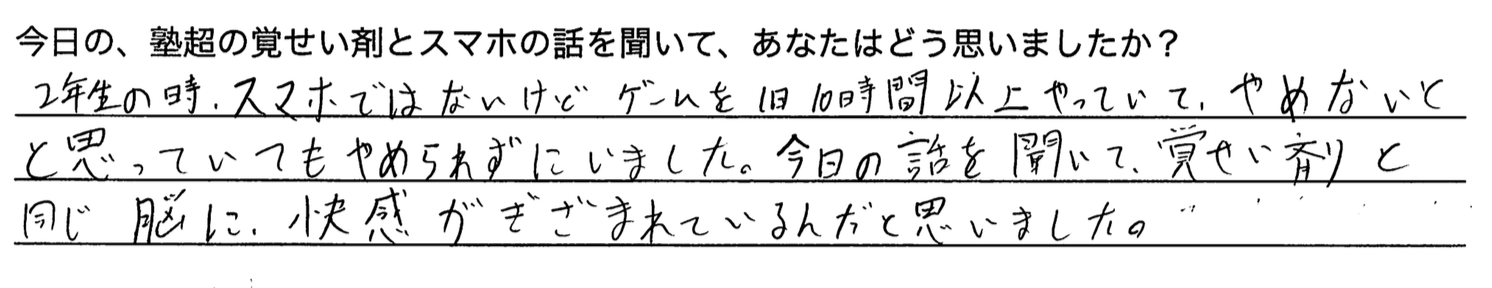 今日の、塾超の覚せい剤とスマホの話を聞いて、あなたはどう思いましたか？
2年生の時、スマホではないけどゲームを1日10時間以上やっていて、やめないと
と思っていてもやめられずにいました。今日の話を聞いて、覚せい剤と
同じ脳に、快感がぎざまれているんだと思いました。